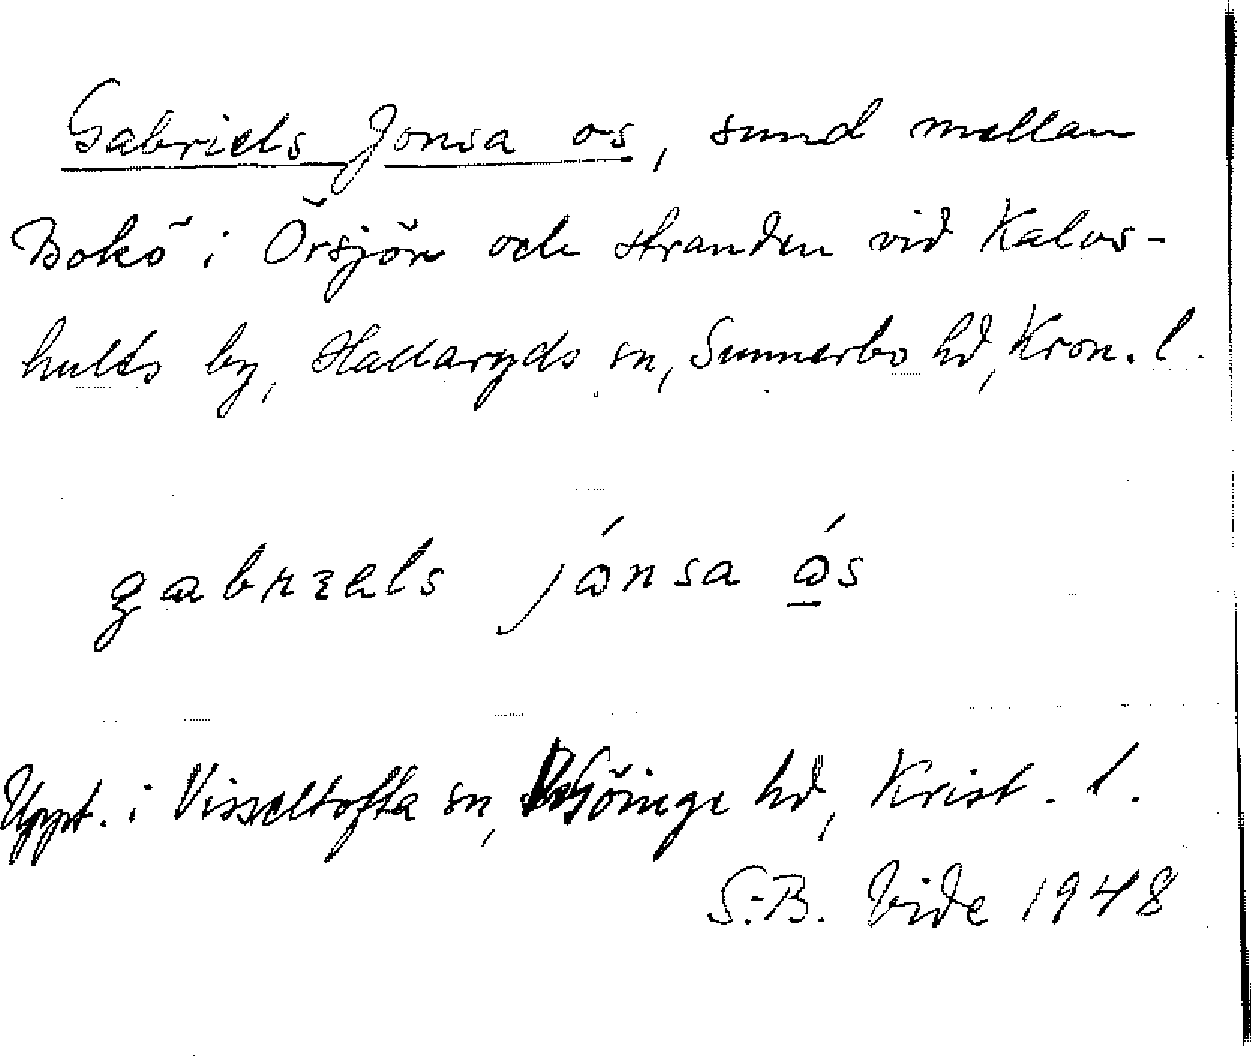 Gabriels Jonsa os, sund mellan
Bokö i Örsjön och stranden vid Kalvs-
hults by, Hallaryds sn, Sunnerbo hd, Kron. l.
gabrɩels jónsa ós
Uppt. i Visseltofta sn, V Göinge hd, Krist. l.
S.-B. Vide 1948